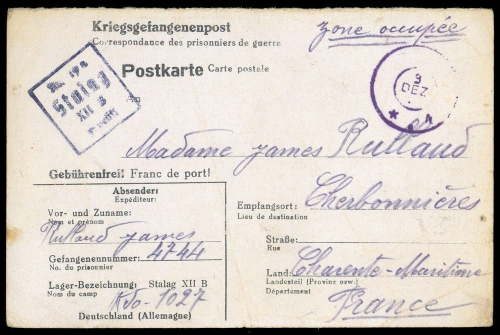 Kriegsgefangenenpost
Correspondance des prisonniers de guerre
zone occupée
Postkarte Carte postale
Stalag
XII B
3
DEZ
An
Madame James Rulland
Gebührenfrei! Franc de port!
Absender:
Expéditeur:
Vor- und Zuname:
Nom et prénom
Rulland James
Gefangenennummer: 4744
No. du prisonnier
Lager-Bezeichnung: Stalag XII B
Nom du camp
Kdo-1027
Deutschland (Allemagne)
Empfangsort: Cherbonnières
Lieu de destination
Straße:
Rue
Land: Charente-Maritime
Landesteil (Provinz usw.)
Département
France